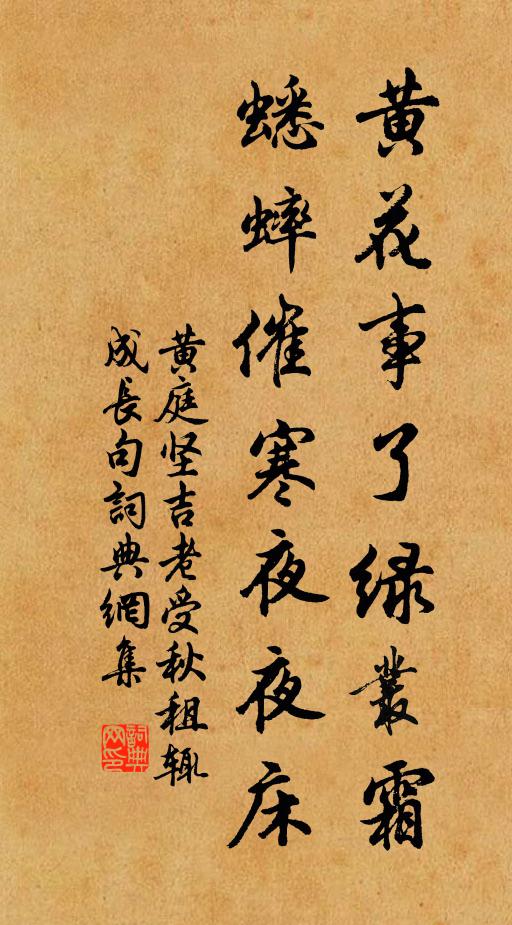 黄花事了绿叢霜
蟋蟀催寒夜夜床
黄庭坚吉老受秋租辄
成長句詞典網集
詞典網印